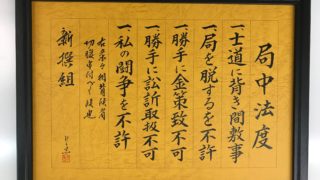 局中法度
一、士道に背き間敷事
一、局を脱するを不許
一、勝手に金策致不可
一、勝手に訴訟取扱不可
一、私の闘争を不許
右条々相背候者
切腹申付べく候也
新撰組